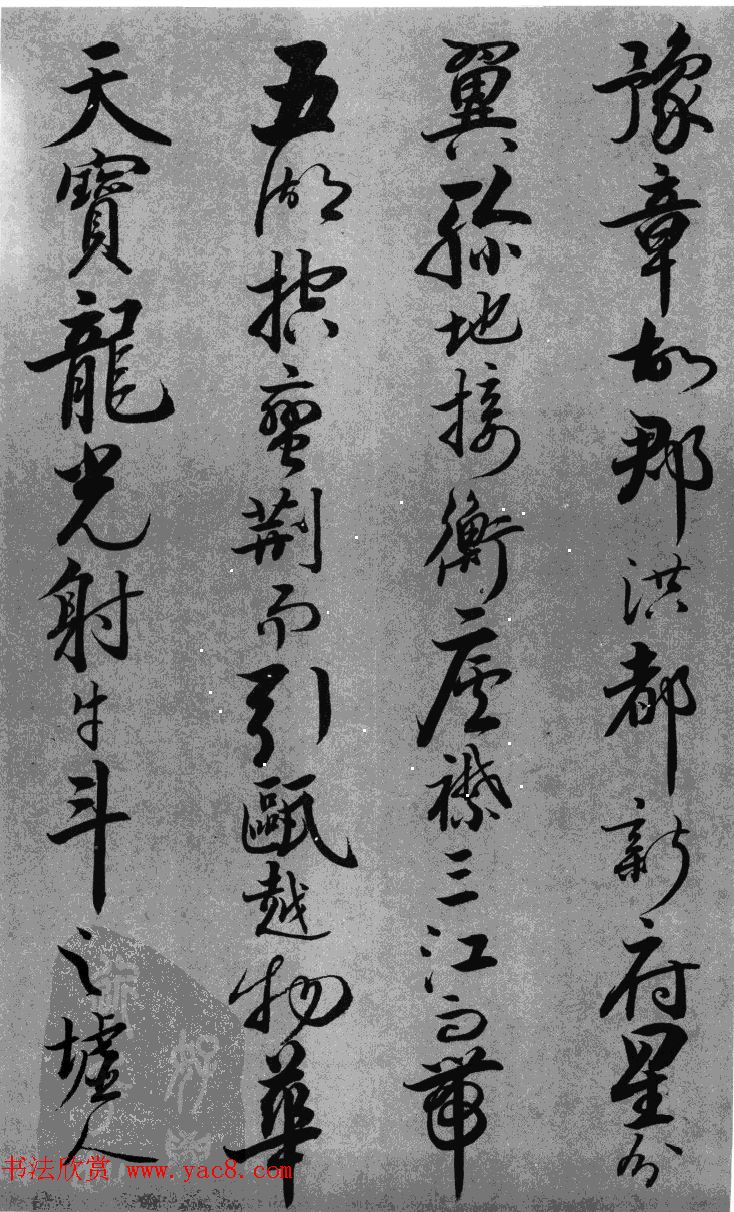 豫章故郡洪都新府星分
翼軫地接衡廬襟三江而帶
五湖控蠻荊而引甌越物華
天寶龍光射牛斗之墟人
书法欣赏 www.yac8.com